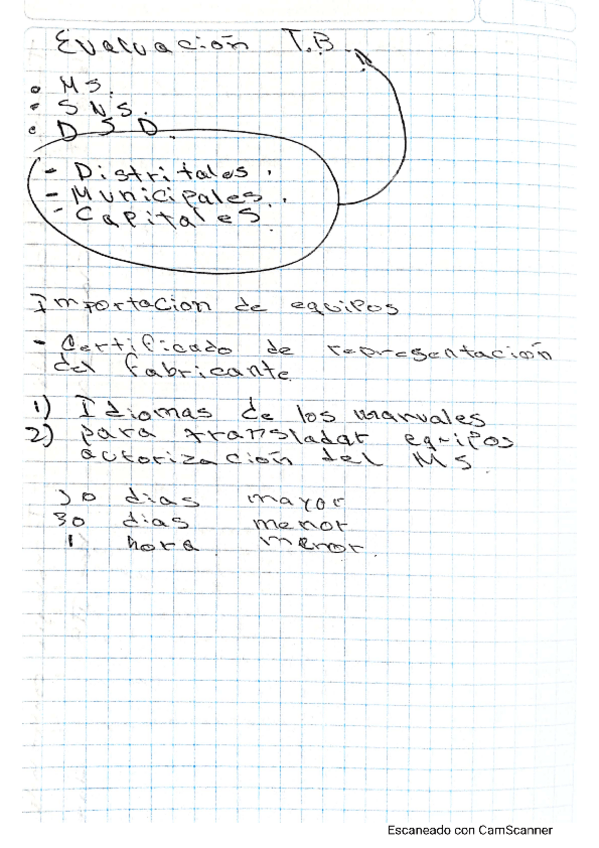 Evaluación T.B.
• MS.
• SNS.
• DSD.
- Distritales.
- Municipales.
- Capitales.
Importacion de equipos
- Certificado de representación
del fabricante.
1) Idiomas de los manuales
2) para transladar equipos
autorización del MS
dias mayor
30 dias menor
1 hora menor.
Escaneado con CamScanner